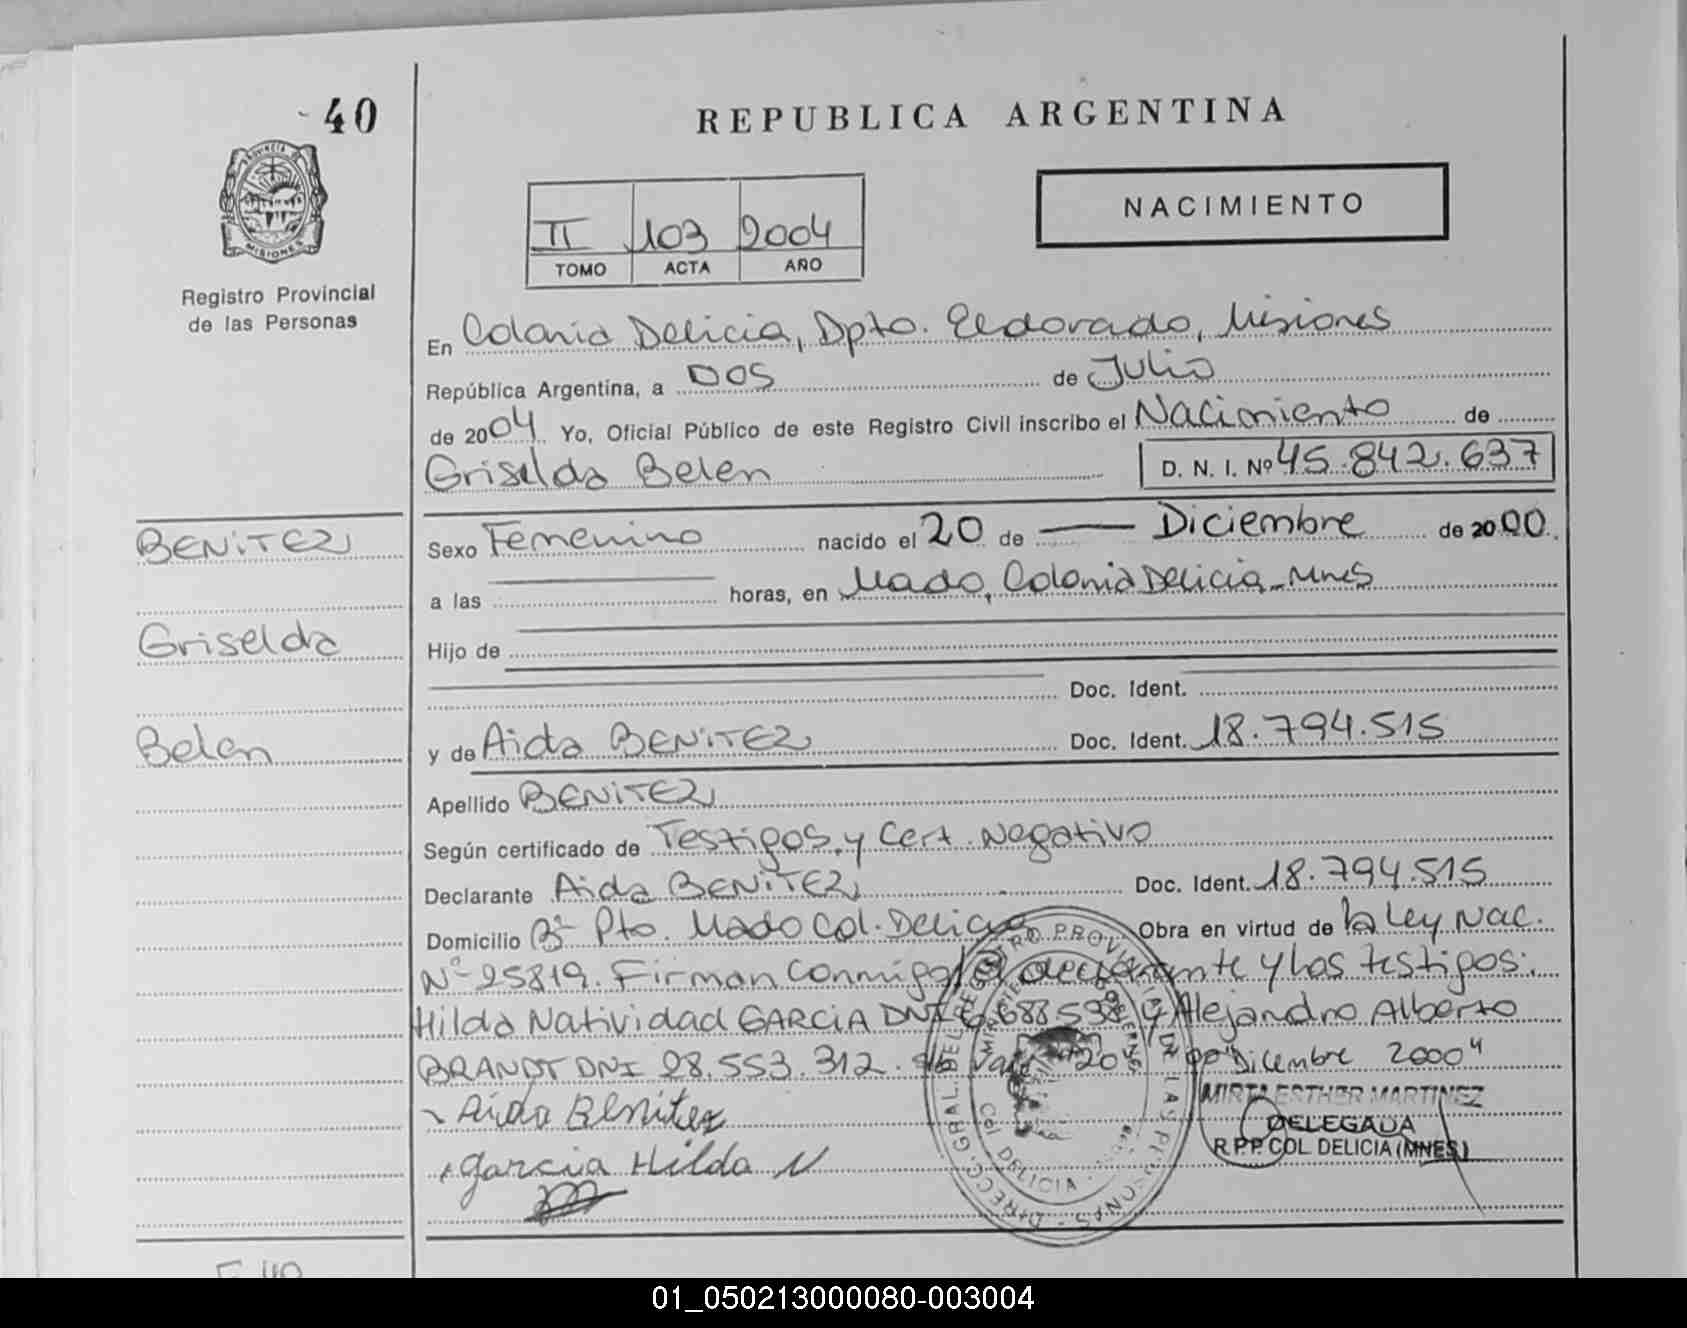 40
REPUBLICA ARGENTINA
PROVINCIA DE MISIONES
NACIMIENTO
II 103 2004
TOMO ACTA AÑO
Registro Provincial
de las Personas
En Colonia Delicia, Dpto. Eldorado, Misiones
República Argentina, a DOS de Julio
de 2004 Yo, Oficial Público de este Registro Civil inscribo el Nacimiento de
Griselda Belen D. N. I. Nº 45.842.637
BENITEZ
Griselda
Belen
Sexo Femenino nacido el 20 de Diciembre de 2000
a las horas, en Mado, Colonia Delicia_Mnes
Hijo de
Doc. Ident.
y de Aida BENITEZ Doc. Ident. 18.794.515
Apellido BENITEZ
Según certificado de Testigos y Cert. Negativo
Declarante Aida BENITEZ Doc. Ident. 18.794.515
Domicilio Bº Pto. Mado Col. Delicia Obra en virtud de la Ley Nac.
Nº 25819. Firman conmigo la declarante y los testigos:
Hilda Natividad GARCIA DNI 6.688.538 y Alejandro Alberto
BRANDT DNI 28.553.312. Vale "20" "Diciembre 2000"
Aida Benitez
Garcia Hilda N
MIRTA ESTHER MARTINEZ
DELEGADA
R.P.P. COL DELICIA (MNES)
COL DELICIA
01_050213000080-003004